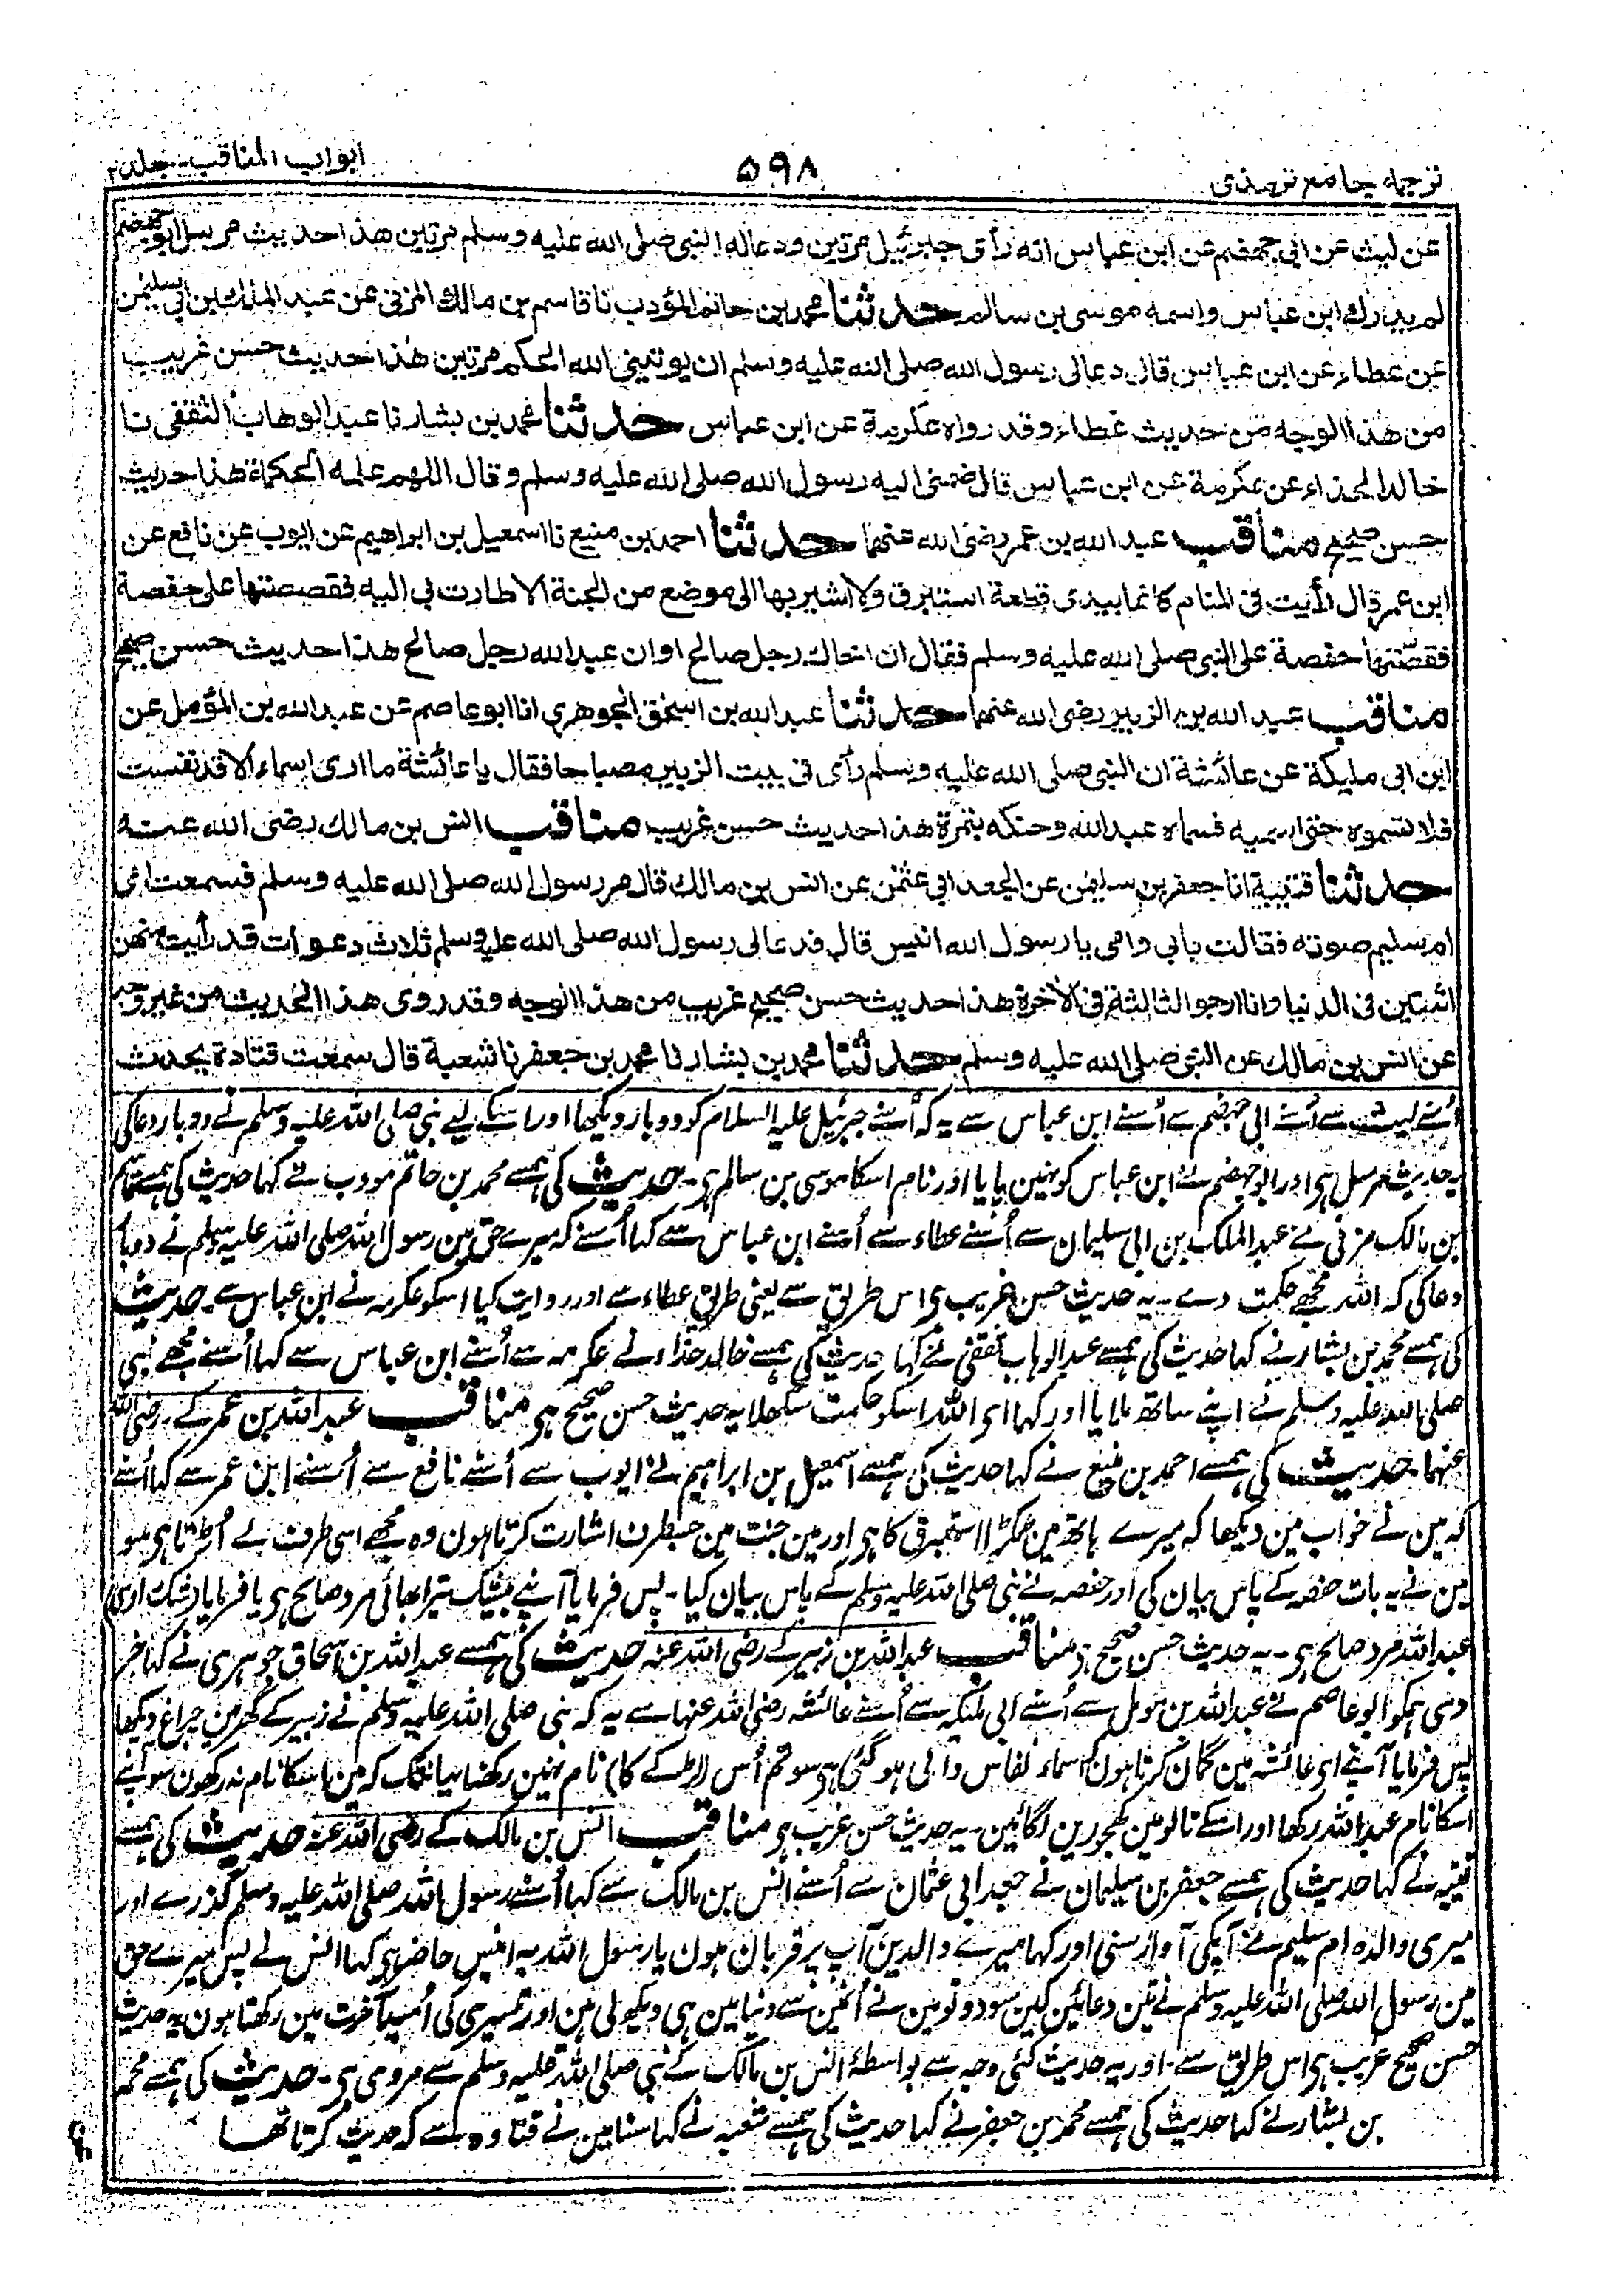 ترجمہ جامع ترمذی
۵۹۸
ابواب المناقب۔ جلد ۲
عن لیث عن ابی جهضم عن ابن عباس انه رأى جبرئیل مرتین ودعا له النبی صلی الله علیه وسلم مرتین هذا حدیث مرسل ابو جهضم
لم یدرك ابن عباس واسمه موسی بن سالم حدثنا محمد بن حاتم المؤدب نا قاسم بن مالك المزنی عن عبد الملك بن ابی سلیمن
عن عطاء عن ابن عباس قال دعا لی رسول الله صلی الله علیه وسلم ان یوتینی الله الحکم مرتین هذا حدیث حسن غریب
من هذا الوجه من حدیث عطاء وقد رواه عکرمة عن ابن عباس حدثنا محمد بن بشار نا عبد الوهاب الثقفی نا
خالد الحذاء عن عکرمة عن ابن عباس قال ضمنی الیه رسول الله صلی الله علیه وسلم وقال اللهم علمه الحکمة هذا حدیث
حسن صحیح مناقب عبد الله بن عمر رضی الله عنهما حدثنا احمد بن منیع نا اسمعیل بن ابراهیم عن ایوب عن نافع عن
ابن عمر قال رأیت فی المنام کانما بیدی قطعة استبرق ولا اشیر بها الی موضع من الجنة الا طارت بی الیه فقصصتها علی حفصة
فقصتها حفصة علی النبی صلی الله علیه وسلم فقال ان اخاك رجل صالح او ان عبد الله رجل صالح هذا حدیث حسن صحیح
مناقب عبد الله بن الزبیر رضی الله عنهما حدثنا عبد الله بن اسحٰق الجوهری انا ابو عاصم عن عبد الله بن المؤمل عن
ابن ابی ملیکة عن عائشة ان النبی صلی الله علیه وسلم رأى فی بیت الزبیر مصباحا فقال یا عائشة ما اری اسماء الا قد نفست
فلا تسموه حتی اسمیه فسماه عبد الله وحنکه بتمرة هذا حدیث حسن غریب مناقب انس بن مالك رضی الله عنه
حدثنا قتیبة انا جعفر بن سلیمٰن عن الجعد ابی عثمٰن عن انس بن مالك قال مر رسول الله صلی الله علیه وسلم فسمعت امی
ام سلیم صوته فقالت بابی وامی یا رسول الله انیس قال فدعا لی رسول الله صلی الله علیه وسلم ثلاث دعوات قد رأیت منهن
اثنتین فی الدنیا وانا ارجو الثالثة فی الآخرة هذا حدیث حسن صحیح غریب من هذا الوجه وقد روی هذا الحدیث من غیر وجه
عن انس بن مالك عن النبی صلی الله علیه وسلم حدثنا محمد بن بشار نا محمد بن جعفر نا شعبة قال سمعت قتادة یحدث
اُسنے لیث سے اُسنے ابی جہضم سے اُسنے ابن عباس سے یہ کہ اُسنے جبرئیل علیہ السلام کو دو بار دیکھا اور اسکے لیے نبی صلی اللہ علیہ وسلم نے دو بار دعا کی
یہ حدیث مرسل ہی اور ابو جہضم نے ابن عباس کو نہین پایا اور نام اسکا موسی بن سالم ہی۔ حدیث کی ہمسے محمد بن حاتم مودب نے کہا حدیث کی ہمسے قاسم
بن مالک مزنی نے عبد الملک بن ابی سلیمان سے اُسنے عطاء سے اُسنے ابن عباس سے کہا اُسنے کہ میرے حق مین رسول اللہ صلی اللہ علیہ وسلم نے دوبار
دعا کی کہ اللہ مجھے حکمت دے۔ یہ حدیث حسن غریب ہی اس طریق سے یعنی طریق عطاء سے اور روایت کیا اسکو عکرمہ نے ابن عباس سے۔ حدیث
کی ہمسے محمد بن بشار نے کہا حدیث کی ہمسے عبد الوہاب ثقفی نے کہا حدیث کی ہمسے خالد حذاء نے عکرمہ سے اُسنے ابن عباس سے کہا اُسنے مجھے نبی
صلی اللہ علیہ وسلم نے اپنے ساتھ ملایا اور کہا ای اللہ اسکو حکمت سکھلا یہ حدیث حسن صحیح ہی مناقب عبد اللہ بن عمر کے۔ رضی اللہ
عنہما۔ حدیث کی ہمسے احمد بن منیع نے کہا حدیث کی ہمسے اسمعیل بن ابراہیم نے ایوب سے اُسنے نافع سے اُسنے ابن عمر سے کہا اُسنے
کہ مین نے خواب مین دیکھا کہ میرے ہاتھ مین ٹکڑا استبرق کا ہی اور مین جنت مین جسطرف اشارت کرتا ہون وہ مجھے اسی طرف لے اُڑتا ہی سو
مین نے یہ بات حفصہ کے پاس بیان کی اور حفصہ نے نبی صلی اللہ علیہ وسلم کے پاس بیان کیا۔ پس فرمایا آپنے بیشک تیرا بھائی مرد صالح ہی یا فرمایا (شک راوی)
عبد اللہ مرد صالح ہی۔ یہ حدیث حسن صحیح ہی مناقب عبد اللہ بن زبیر کے رضی اللہ عنہ حدیث کی ہمسے عبد اللہ بن اسحاق جوہری نے کہا خبر
دی ہمکو ابو عاصم نے عبد اللہ بن مومل سے اُسنے ابی ملیکہ سے اُسنے عائشہ رضی اللہ عنہا سے یہ کہ نبی صلی اللہ علیہ وسلم نے زبیر کے گھر مین چراغ دیکھا
پس فرمایا آپنے ای عائشہ مین گمان کرتا ہون کہ اسماء نفاس والی ہو گئی ہی سو تم اُس (لڑکے کا) نام نہین رکھنا یہانتک کہ مین اسکا نام نہ رکھون سو آپنے
اسکا نام عبد اللہ رکھا اور اسکے تالو مین کھجورین لگائین۔ یہ حدیث حسن غریب ہی مناقب انس بن مالک کے رضی اللہ عنہ حدیث کی ہمسے
قتیبہ نے کہا حدیث کی ہمسے جعفر بن سلیمان نے جعد ابی عثمان سے اُسنے انس بن مالک سے کہا اُسنے رسول اللہ صلی اللہ علیہ وسلم گذرے اور
میری والدہ ام سلیم نے آپکی آواز سنی اور کہا میرے والدین آپ پر قربان ہون یا رسول اللہ یہ انیس حاضر ہی کہا انس نے پس میرے حق
مین رسول اللہ صلی اللہ علیہ وسلم نے تین دعائین کین سو دو تو مین نے اُنمین سے دنیا مین ہی دیکھ لی ہین اور تیسری کی اُمید آخرت مین رکھتا ہون یہ حدیث
حسن صحیح غریب ہی اس طریق سے۔ اور یہ حدیث کئی وجہ سے بواسطۂ انس بن مالک کے نبی صلی اللہ علیہ وسلم سے مروی ہی۔ حدیث کی ہمسے محمد
بن بشار نے کہا حدیث کی ہمسے محمد بن جعفر نے کہا حدیث کی ہمسے شعبہ نے کہا سنا مین نے قتادہ سے کہ حدیث کرتا تھا